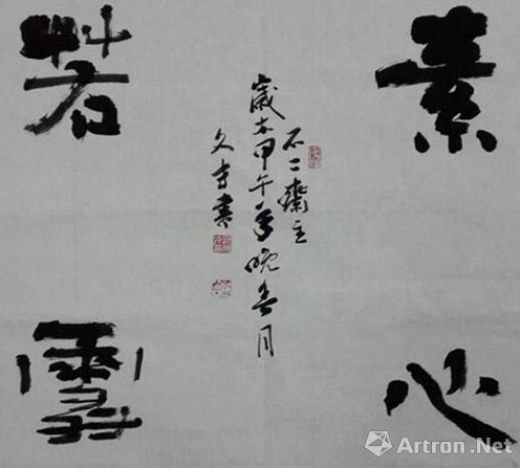 素心
不二齋主
歲在甲午年晚春月
書
若雪
Artron.Net